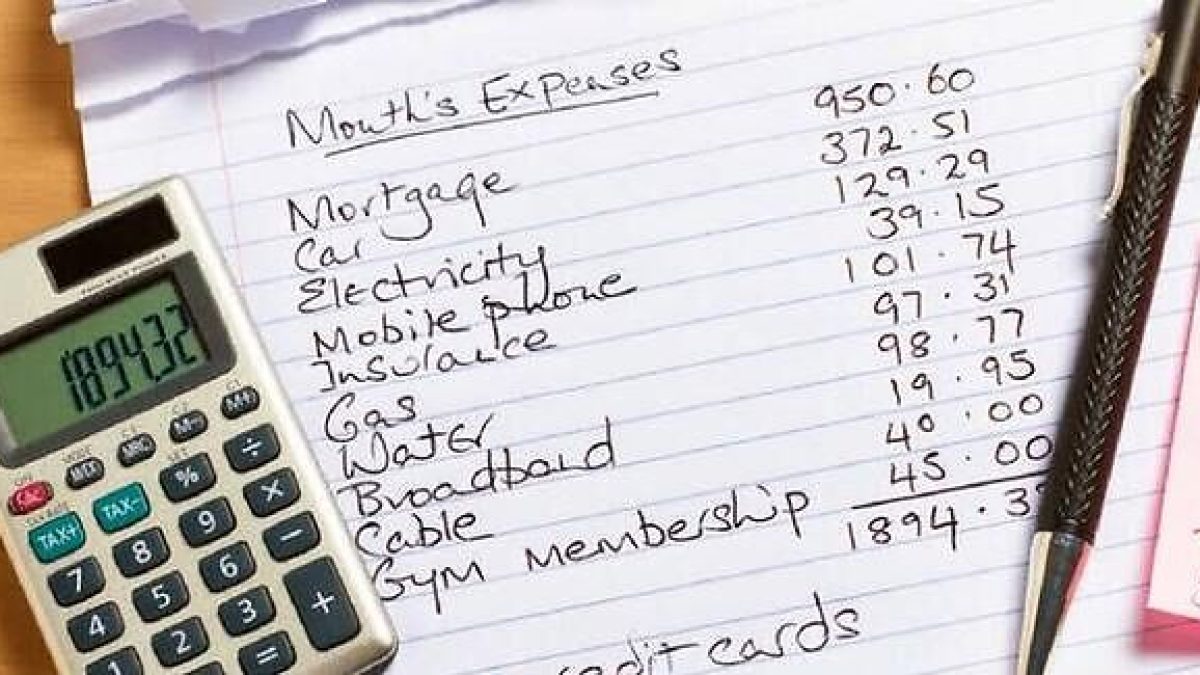 Month's Expenses
Mortgage 950.60
Car 372.51
Electricity 129.29
Mobile phone 39.15
Insurance 101.74
Gas 97.31
Water 98.77
Broadband 19.95
Cable 40.00
Gym membership 45.00
1894.3
credit cards
1894.32
MRC M- M+
% ÷
TAX+ TAX-
7 8 9 ×
4 5 6 −
1 2 3 +
=